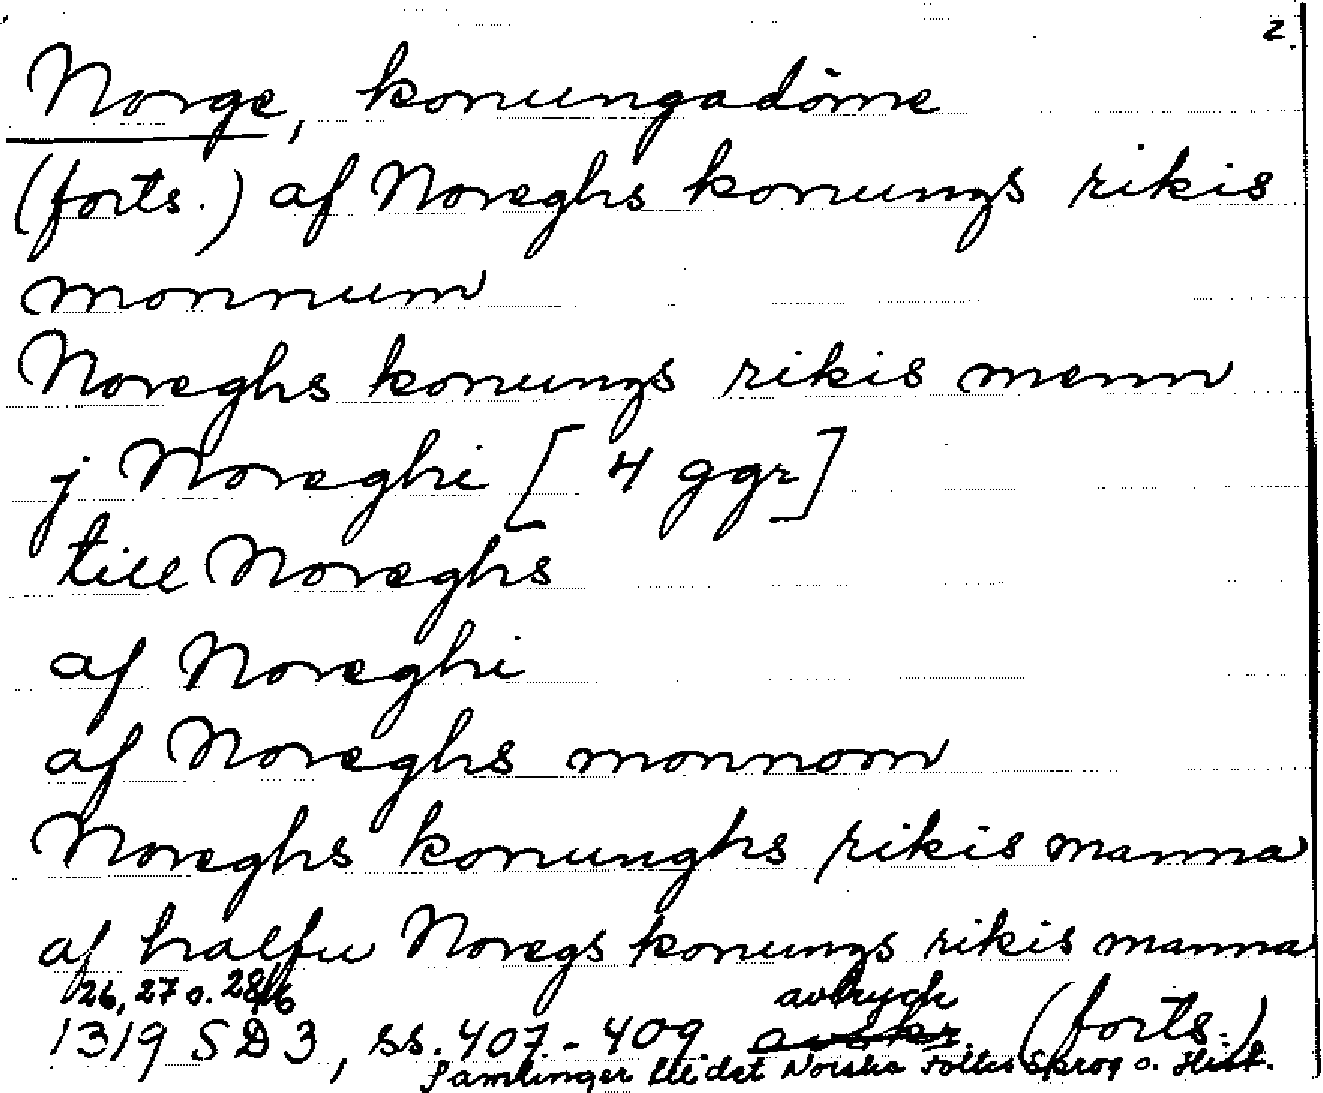 2.
Norge, konungadöme
(forts.) af Noreghs konungs rikis
monnum
Noreghs konungs rikis menn
j Noreghi [4 ggr]
till Noreghs
af Noreghi
af Noreghs monnom
Noreghs konunghs rikis manna
af halfu Noregs konungs rikis manna
26, 27 o. 28/6 avtryck
1319 SD 3, ss. 407-409 avskr. (forts.)
Samlinger til det Norske Folks Sprog o. Hist.